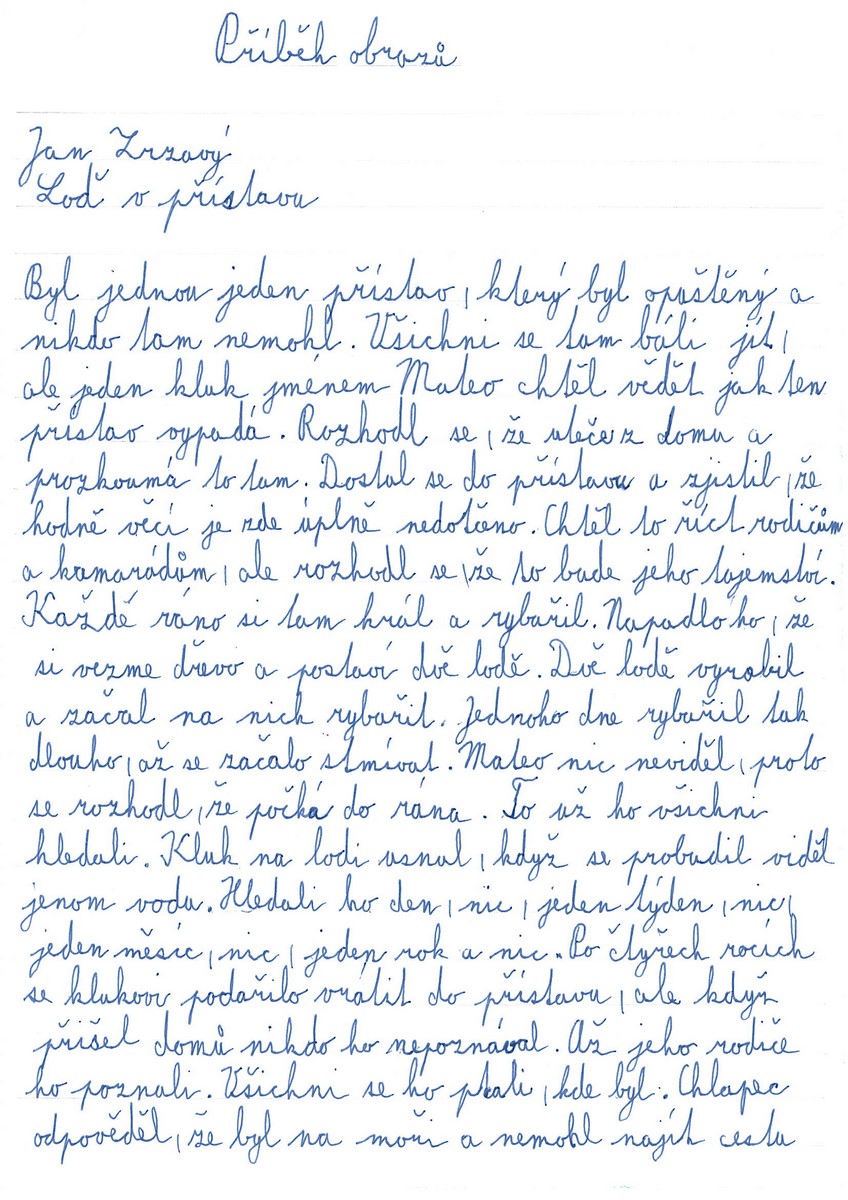 Příběh obrazů
Jan Zrzavý
Loď v přístavu
Byl jednou jeden přístav, který byl opuštěný a
nikdo tam nemohl. Všichni se tam báli jít,
ale jeden kluk jménem Mateo chtěl vědět jak ten
přístav vypadá. Rozhodl se, že uteče z domu a
prozkoumá to tam. Dostal se do přístavu a zjistil, že
hodně věcí je zde úplně nedotčeno. Chtěl to říct rodičům
a kamarádům, ale rozhodl se, že to bude jeho tajemství.
Každé ráno si tam hrál a rybařil. Napadlo ho, že
si vezme dřevo a postaví dvě lodě. Dvě lodě vyrobil
a začal na nich rybařit. Jednoho dne rybařil tak
dlouho, až se začalo stmívat. Mateo nic neviděl, proto
se rozhodl, že počká do rána. To už ho všichni
hledali. Kluk na lodi usnul, když se probudil viděl
jenom vodu. Hledali ho den, nic, jeden týden, nic,
jeden měsíc, nic, jeden rok a nic. Po čtyřech rocích
se klukovi podařilo vrátit do přístavu, ale když
přišel domů nikdo ho nepoznával. Až jeho rodiče
ho poznali. Všichni se ho ptali, kde byl. Chlapec
odpověděl, že byl na moři a nemohl najít cestu